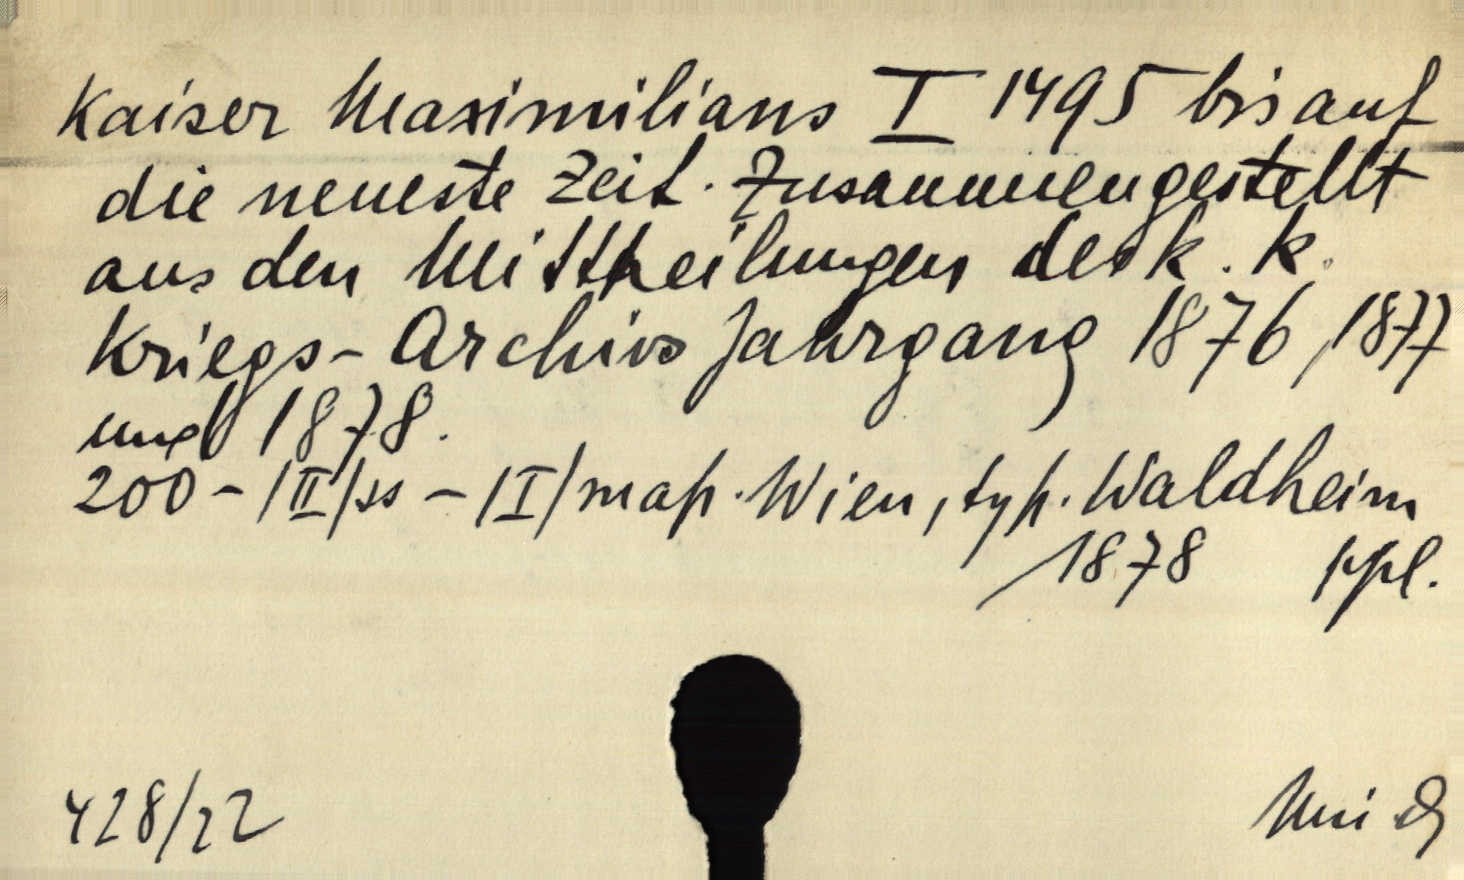 Kaiser Maximilians I 1495 bis auf
die neueste Zeit. Zusammengestellt
aus den Mittheilungen des k. k.
Kriegs-Archivs Jahrgang 1876, 1877
und 1878.
200 - /II/ ss - /I/ map. Wien, typ. Waldheim
1878 ppl.
428/22